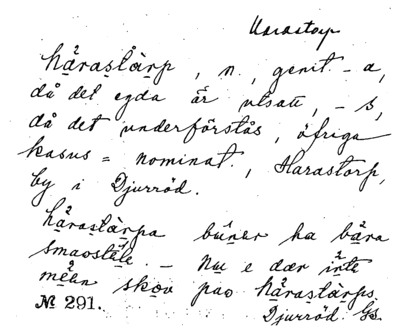 Harastorp
hårastårp, n., genit. -a,
då det egda är utsatt, -s,
då det underförstås, öfriga
kasus = nominat., Harastorp,
by i Djurröd.
hårastårpa bunar ha bara
smaoställe. - Nu e dær inte
skou pao hårastårps.
№ 291. Djurröd Gs.